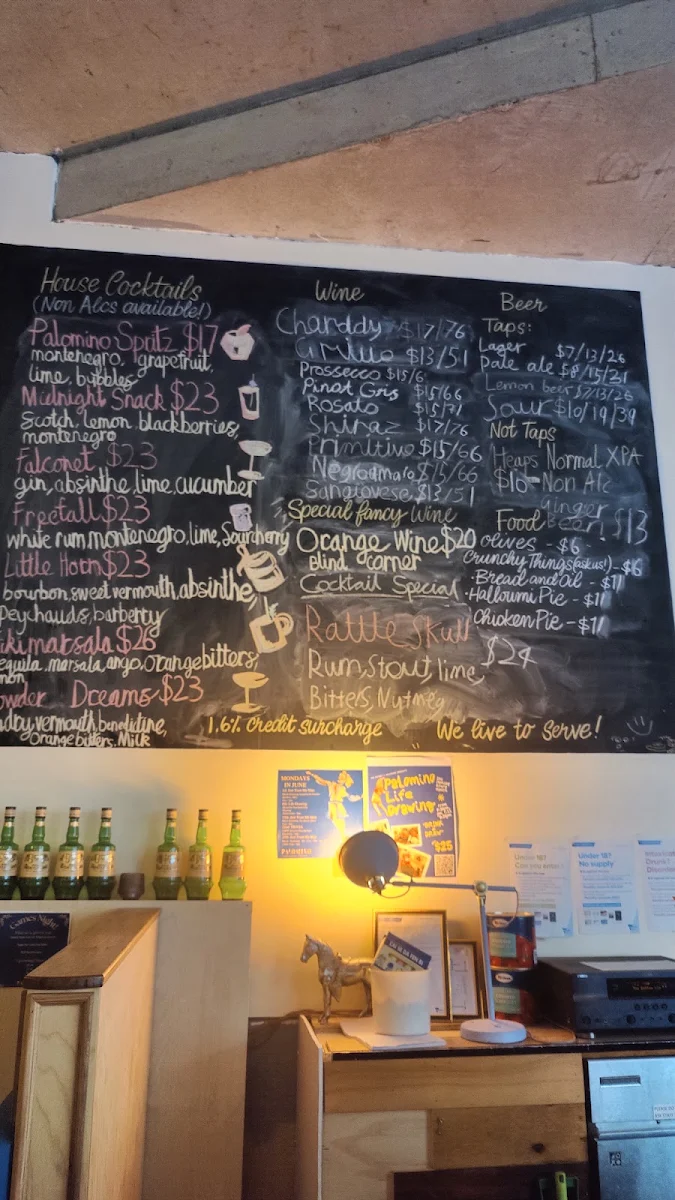 House Cocktails
(Non Alcs available!)
Palomino Spritz $17
montenegro, grapefruit,
lime, bubbles
Midnight Snack $23
Scotch, lemon, blackberries,
montenegro
Falconet $23
gin, absinthe, lime, cucumber
Freefall $23
white rum, montenegro, lime, Sourcherry
Little Horn $23
bourbon, sweet vermouth, absinthe,
Peychauds, barberry
$26
marsala, ango, orange bitters,
Dreams $23
vermouth, benedictine,
Orange bitters, Milk
Wine
Charddy $17/76
Grillo $13/51
Prossecco $15/6
Pinot Gris $15/66
Rosato $15/71
Shiraz $17/76
Primitivo $15/66
Negroamaro $15/66
Sangiovese $13/51
Special fancy Wine
Orange Wine $20
Blind corner
Cocktail Special
Rattle Skull
$24
Rum, Stout, lime,
Bitters, Nutmeg
Beer
Taps:
Lager $7/13/26
Pale ale $8/15/31
Lemon beer $7/13/26
Sour $10/19/39
Not Taps
Heaps Normal XPA
$10 - Non Alc
Ginger
Beer $13
Food
olives - $6
Crunchy Things (ask us!) - $6
Bread and Oil - $11
Halloumi Pie - $11
Chicken Pie - $11
1.6% credit surcharge
We live to serve!
MONDAYS
IN JUNE
Palomino
Life
Drawing
$25
Under 18?
No supply
Under 18?
Games Night!